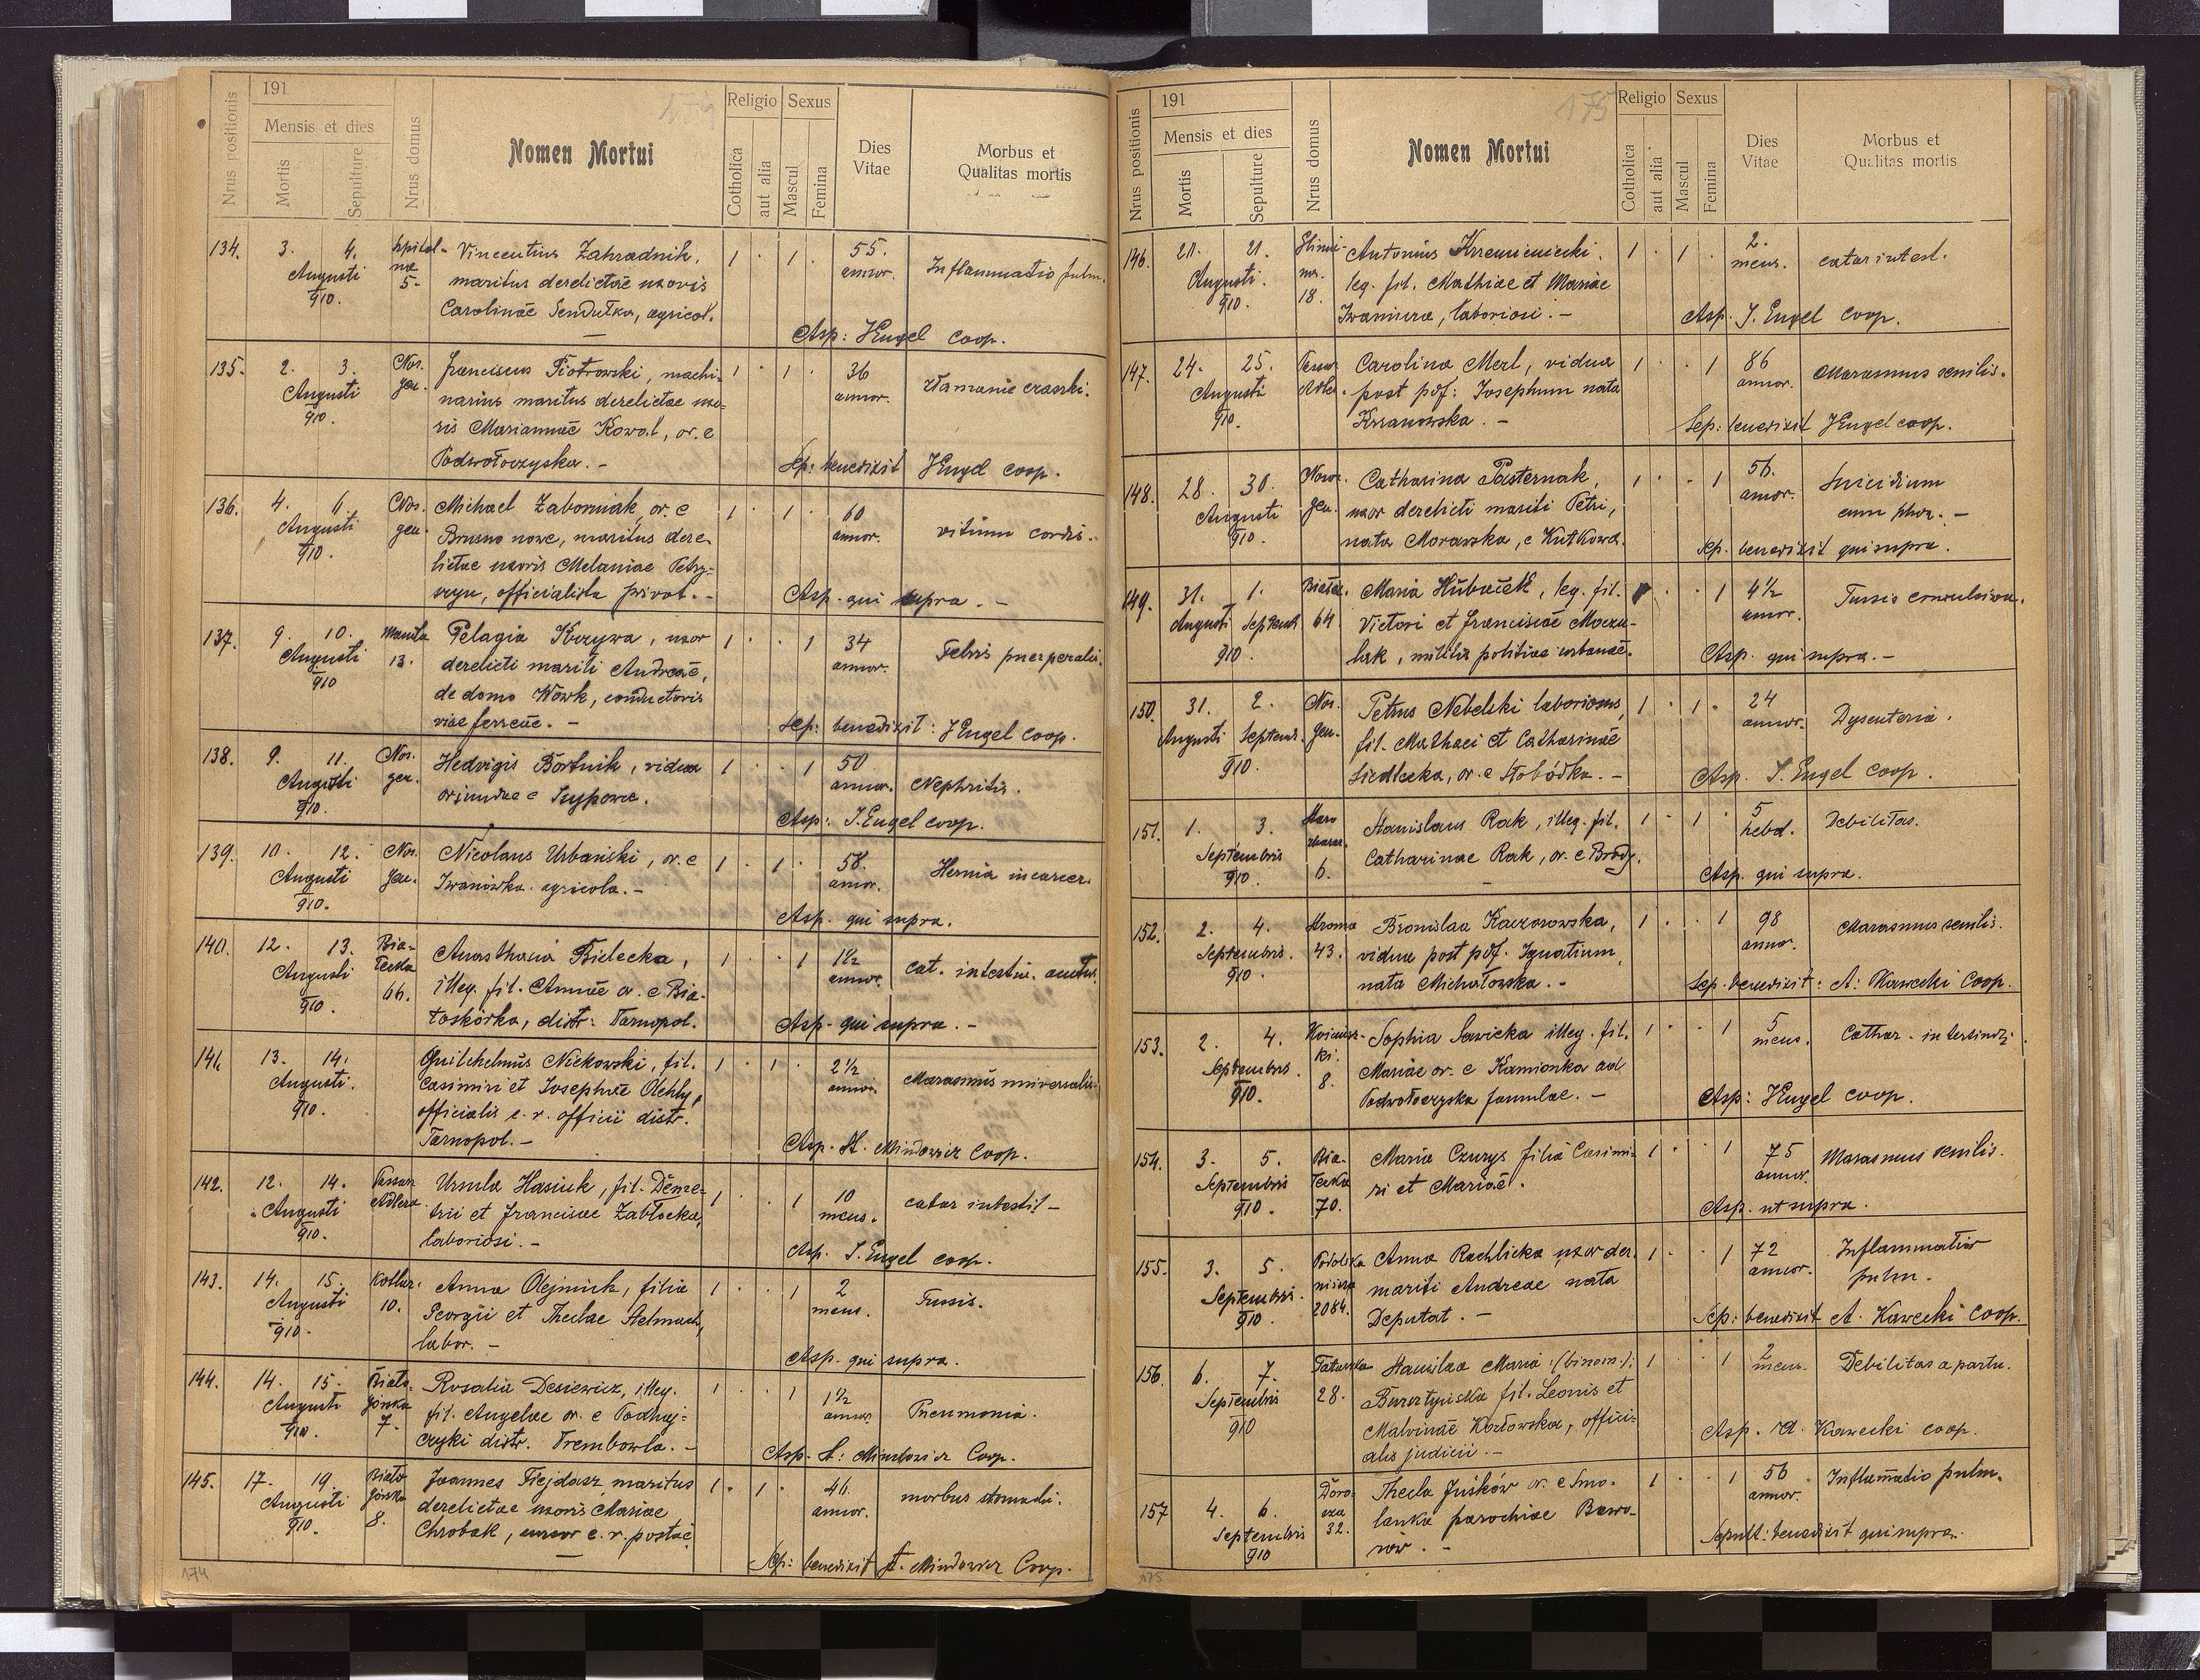 191
Nrus positionis
Mensis et dies
Mortis
Sepulture
Nrus domus
Nomen Mortui
174
Religio
Sexus
Cotholica
aut alia
Mascul
Femina
Dies Vitae
Morbus et
Qualitas mortis
134. 3. 4. Augusti 910. Szpital-na 5. Vincentius Zahradnik, 1 . 1 . 55. annor. Inflammatio pulm.
maritus derelictae uxoris
Carolinae Sendutka, agricol.
Asp: JEngel coop.
135. 2. 3. Augusti 910. Nos. gen. Franciscus Piotrowski, machi- 1 . 1 . 36 annor. złamanie czaszki.
narius maritus derelictae uxo-
ris Mariannae Kowal, or. e
Podwołoczyska. -
Sep: benedixit JEngel coop.
136. 4. 6. Augusti 910. Nos. gen. Michael Zaborniak, or. e 1 . 1 . 60 annor. vitium cordis.
Brusno nowe, maritus dere-
lictae uxoris Melaniae Petry-
szyn, officialista privat. -
Asp. qui supra. -
137. 9. 10. Augusti 910 13. Pelagia Krzywa, uxor 1 . . 1 34 annor. Febris puerperalis.
derelicti mariti Andreae,
de domo Wowk, conductoris
viae ferreae. -
Sep: benedixit: JEngel coop.
138. 9. 11. Augusti 910. Nos. gen. Hedvigis Bortnik, vidua 1 . . 1 50 annor. Nephritis.
oriundae e
Asp: J. Engel coop.
139. 10. 12. Augusti 910. Nos. gen. Nicolaus Urbański, or. e 1 . 1 . 58. annor. Hernia incarcer.
Iwanówka agricola. -
Asp. qui supra.
140. 12. 13. Augusti 910. Bia-łecka 66. Anasthasia Bielecka, 1 . . 1 1½ annor. cat. intestin.
illeg. fil. Annae or. e Bia-
łoskórka, distr: Tarnopol.
Asp. qui supra. -
141. 13. 14. Augusti. 910. Guilhelmus Nickowski, fil. 1 . 1 . 2½ annor. Marasmus universalis.
Casimiri et Josephae
officialis c. r. officii distr.
Tarnopol. -
Asp. St. Mindowicz Coop.
142. 12. 14. Augusti 910. Passaz Adlera Ursula Hasiuk, fil. Deme- 1 . . 1 10 mens. catar intestil -
trii et Franciscae Zabłocka,
laboriosi. -
Asp. J. Engel coop.
143. 14. 15. Augusti 910. 10. Anna Olejniuk, filia 1 . . 1 2 mens. Tussis.
Georgii et Theclae Stelmach,
labor. -
Asp. qui supra.
144. 14. 15. Augusti 910. Biało-górska 7. Rosalia Desiewicz, illeg. 1 . . 1 1½ annor. Pneumonia.
fil. Angelae or. e Podhaj-
czyki distr. Trembowla. -
Asp. St: Mindowicz Coop.
145. 17. 19. Augusti 910. Biało górska 8. Joannes Fiejdasz maritus 1 . 1 . 46. annor. morbus stomachi.
derelictae uxoris Mariae
Chrobak, c. r. postae
Sep: benedixit St. Mindowicz Coop.
174
191
Nrus positionis
Mensis et dies
Mortis
Sepulture
Nrus domus
Nomen Mortui
175
Religio
Sexus
Cotholica
aut alia
Mascul
Femina
Dies Vitae
Morbus et
Qualitas mortis
146. 20. 21. Augusti. 910. 18. Antonius Krzemieniecki. 1 . 1 . 2. mens. catar intest.
leg. fil. Mathiae et Mariae
laboriosi. -
Asp. J. Engel coop.
147. 24. 25. Augusti 910. Passaz Adler. Carolina Merl, vidua 1 . . 1 86 annor. Marasmus senilis.
post pdf: Josephum nata
Krzanowska. -
Sep: benedixit JEngel coop.
148. 28. 30. Augusti 910. Nosoc. gen. Catharina Pasternak, 1 . . 1 56. annor. Suicidium
uxor derelicti mariti Petri, cum phos. -
nata Morawska, e Kutkowce.
Sep. benedixit qui supra.
149. 31. 1. Augusti Septemb 910. 64. Maria Hubaček, leg. fil. 1 . . 1 4½ annor. Tussis convulsiva.
Victori et Franciscae
militis politiae urbanae.
Asp. qui supra. -
150. 31. 2. Augusti Septemb. 910. Nos. gen. Petrus Nebelski laboriosus, 1 . 1 . 24 annor. Dysenteria.
fil. Mathaei et Catharinae
Siedlecka, or. e Słobódka. -
Asp. J. Engel coop.
151. 1. 3. Septembris 910. 6. Stanislaus Rak, illeg. fil. 1 . 1 . 5 hebd. Debilitas.
Catharinae Rak, or. e Brody.
Asp. qui supra.
152. 2. 4. Septembris 910. Stroma 43. Bronislaa Kaczorowska, 1 . . 1 98 annor. Marasmus senilis.
vidua post pdf. Ignatium,
nata Michałowska. -
Sep. benedixit: A: Kawecki Coop.
153. 2. 4. Septembris. 910. 8. Sophia Sawicka illeg. fil. 1 . . 1 5 mens. Cathar. intestindi.
Mariae or. e Kamionka ad
Podwołoczyska famulae. -
Asp: JEngel coop.
154. 3. 5. Septembris 910. Bia-łecka 70. Maria Czurys filia Casimi- 1 . . 1 75 annor. Marasmus senilis.
ri et Mariae.
Asp. ut supra.
155. 3. 5. Septembris. 910. Podolska niższa 2084. Anna Rachlicka uxor der. 1 . . 1 72 annor. Inflammatio
mariti Andreae nata pulm.
Deputat. -
Sep: benedixit A. Kawecki Coop.
156. 6. 7. Septembris 910 Tatarska 28. Stanislaa Maria (binom.): 1 . . 1 2 mens. Debilitas a partu.
Bursztyńska fil. Leonis et
Malvinae Kozłowska, offici-
alis judicii. -
Asp. A. Kawecki coop.
157 4. 6. Septembris 910 32. Thecla Juśków or. e Smo- 1 . . 1 56 annor. Inflam̄atio pulm.
lanka parochiae Bawo-
rów. -
Sepult: benedixit qui supra.
175